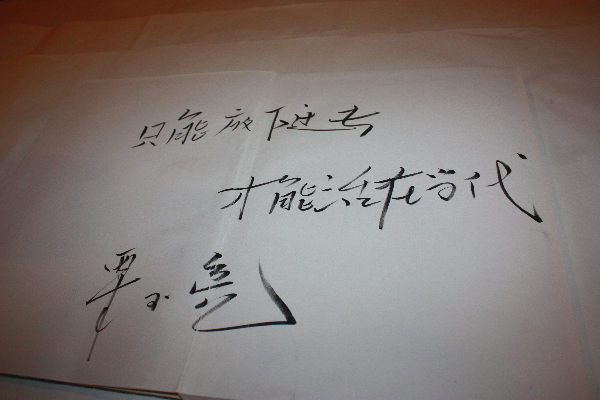 只能放下过去
才能活在当代